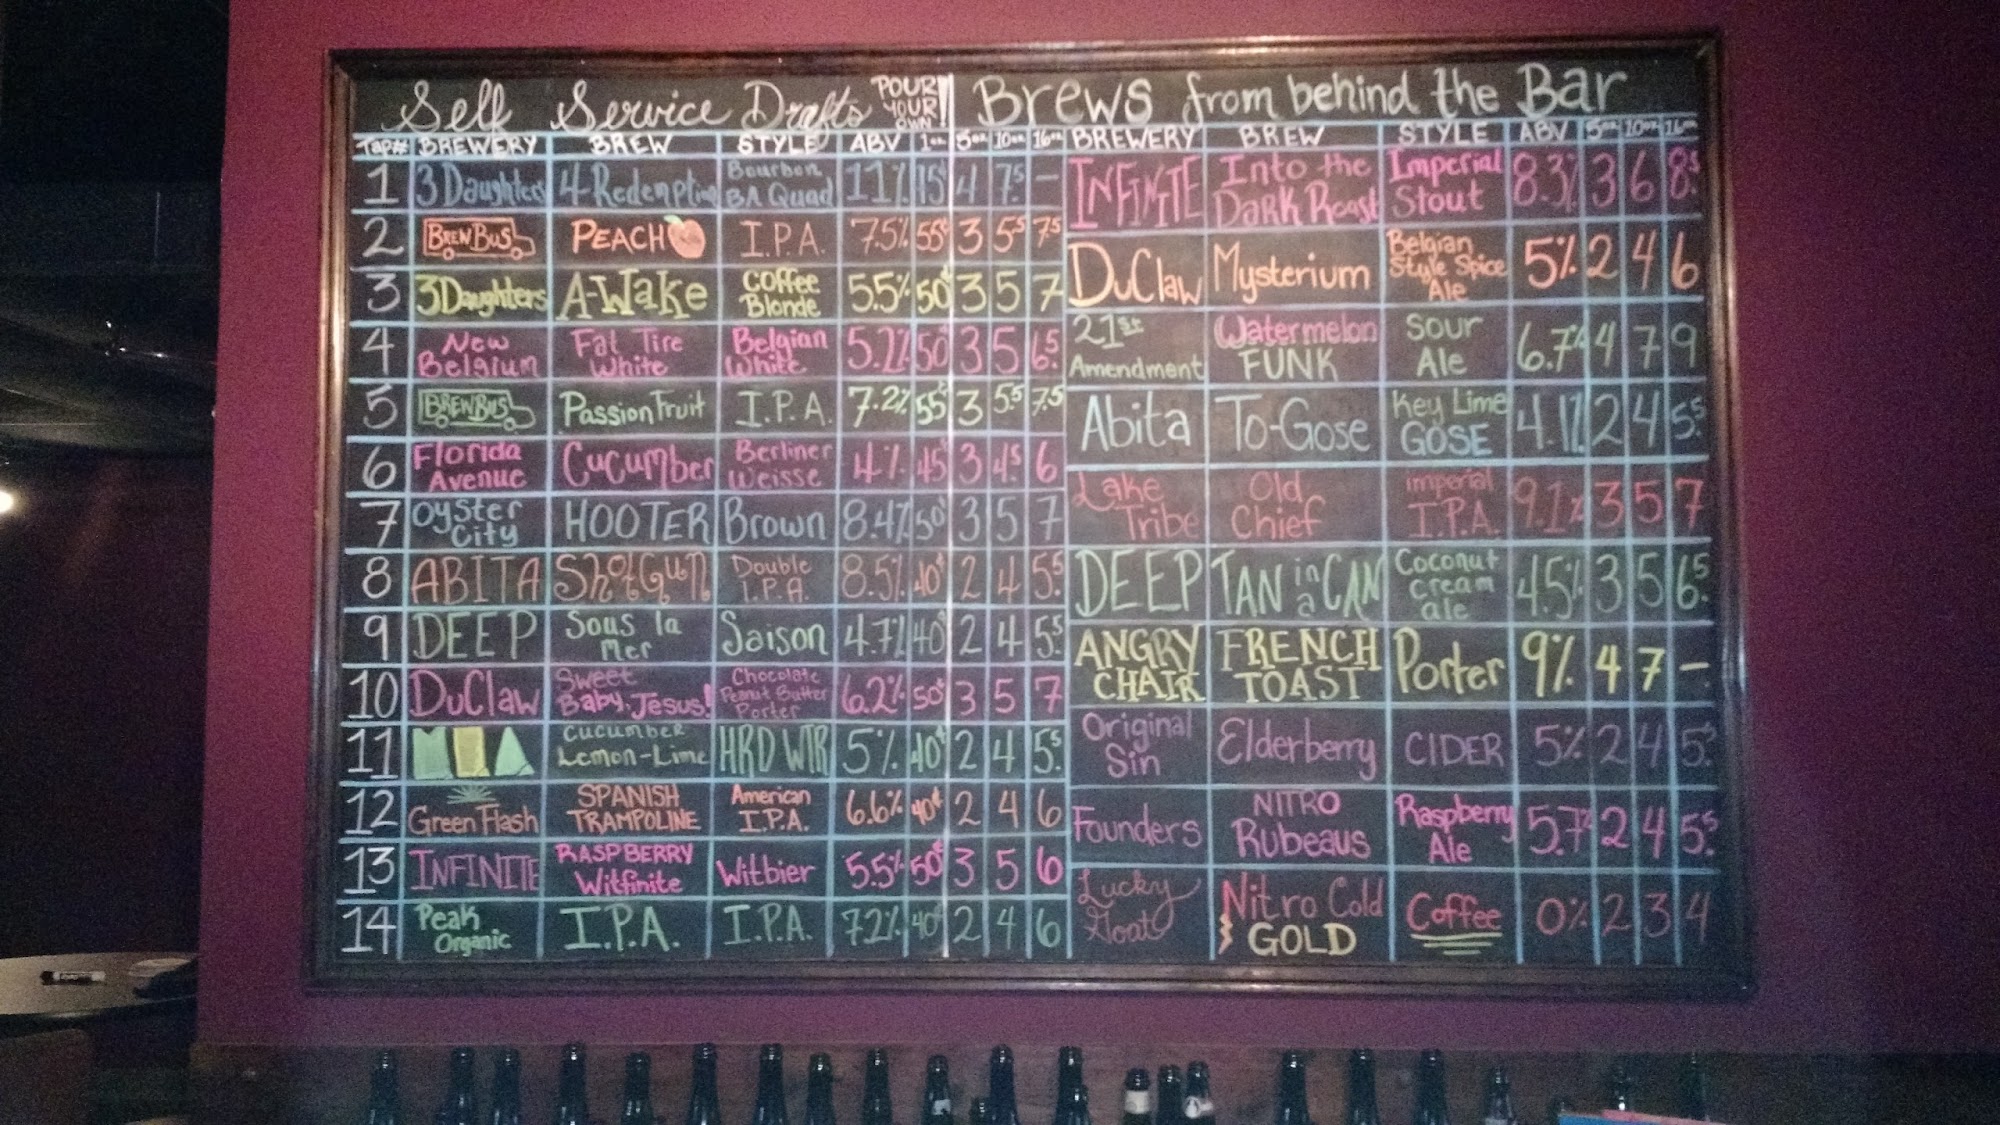 Self Service Drafts POUR YOUR OWN!
TAP# BREWERY BREW STYLE ABV 1oz 5oz 10oz 16oz
1 3 Daughters 4-Redemption Bourbon BA Quad 11% 75¢ 4 7.5 -
2 BREWBUS PEACH I.P.A. 7.5% 55¢ 3 5.5 7.5
3 3 Daughters A-Wake Coffee Blonde 5.5% 50¢ 3 5 7
4 New Belgium Fat Tire White Belgian White 5.2% 50¢ 3 5 6.5
5 BREWBUS Passion Fruit I.P.A. 7.2% 55¢ 3 5.5 7.5
6 Florida Avenue Cucumber Berliner Weisse 4% 45¢ 3 4.5 6
7 Oyster City HOOTER Brown 8.4% 50¢ 3 5 7
8 ABITA ShotGun Double I.P.A. 8.5% 40¢ 2 4 5.5
9 DEEP Sous la Mer Saison 4.7% 40¢ 2 4 5.5
10 DuClaw Sweet Baby, Jesus! Chocolate Peanut Butter Porter 6.2% 50¢ 3 5 7
11 MIA Cucumber Lemon-Lime HRD WTR 5% 40¢ 2 4 5.5
12 Green Flash SPANISH TRAMPOLINE American I.P.A. 6.6% 40¢ 2 4 6
13 INFINITE RASPBERRY Witfinite Witbier 5.5% 50¢ 3 5 6
14 Peak Organic I.P.A. I.P.A. 7.2% 40¢ 2 4 6
Brews from behind the Bar
BREWERY BREW STYLE ABV 5oz 10oz 16oz
INFINITE Into the Dark Roast Imperial Stout 8.3% 3 6 8.5
DuClaw Mysterium Belgian Style Spice Ale 5% 2 4 6
21st Amendment Watermelon FUNK Sour Ale 6.7% 4 7 9
Abita To-Gose Key Lime GOSE 4.1% 2 4 5.5
Lake Tribe Old Chief Imperial I.P.A. 9.1% 3 5 7
DEEP TAN in a CAN Coconut cream ale 4.5% 3 5 6.5
ANGRY CHAIR FRENCH TOAST Porter 9% 4 7 -
Original Sin Elderberry CIDER 5% 2 4 5.5
Founders NITRO Rubeaus Raspberry Ale 5.7% 2 4 5.5
Lucky Goat Nitro Cold GOLD Coffee 0% 2 3 4